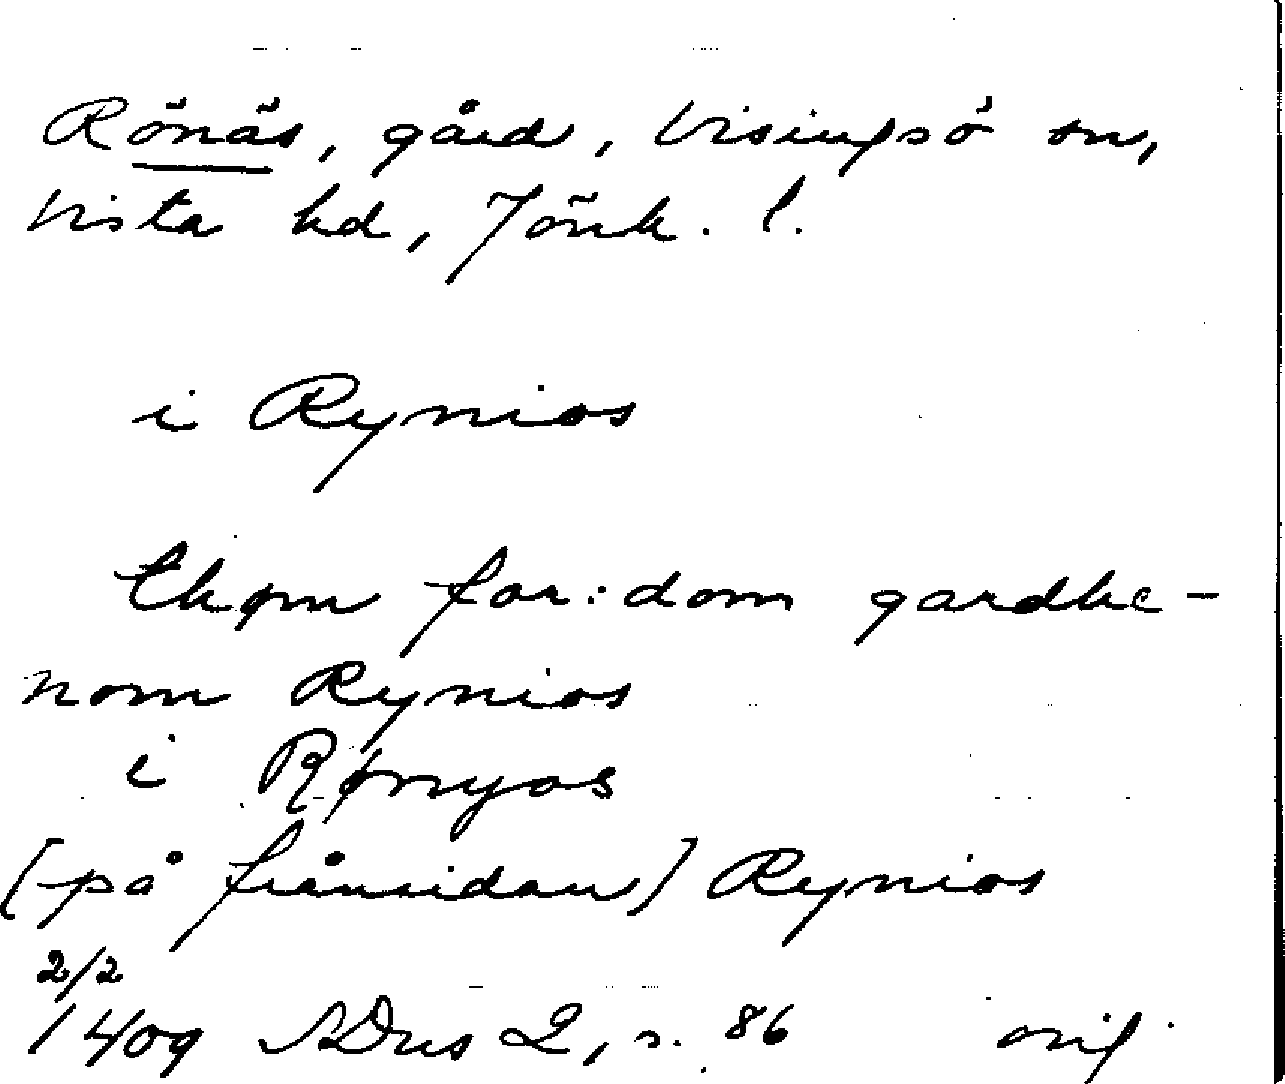 Rönäs, gård, Visingsö sn,
Vista hd, Jönk. l.
i Rynios
thøm for:dom gardhe-
nom Rynios
i Rønyos
[på frånsidan] Rynios
2/2
1409 SDns 2, s. 86 orig.